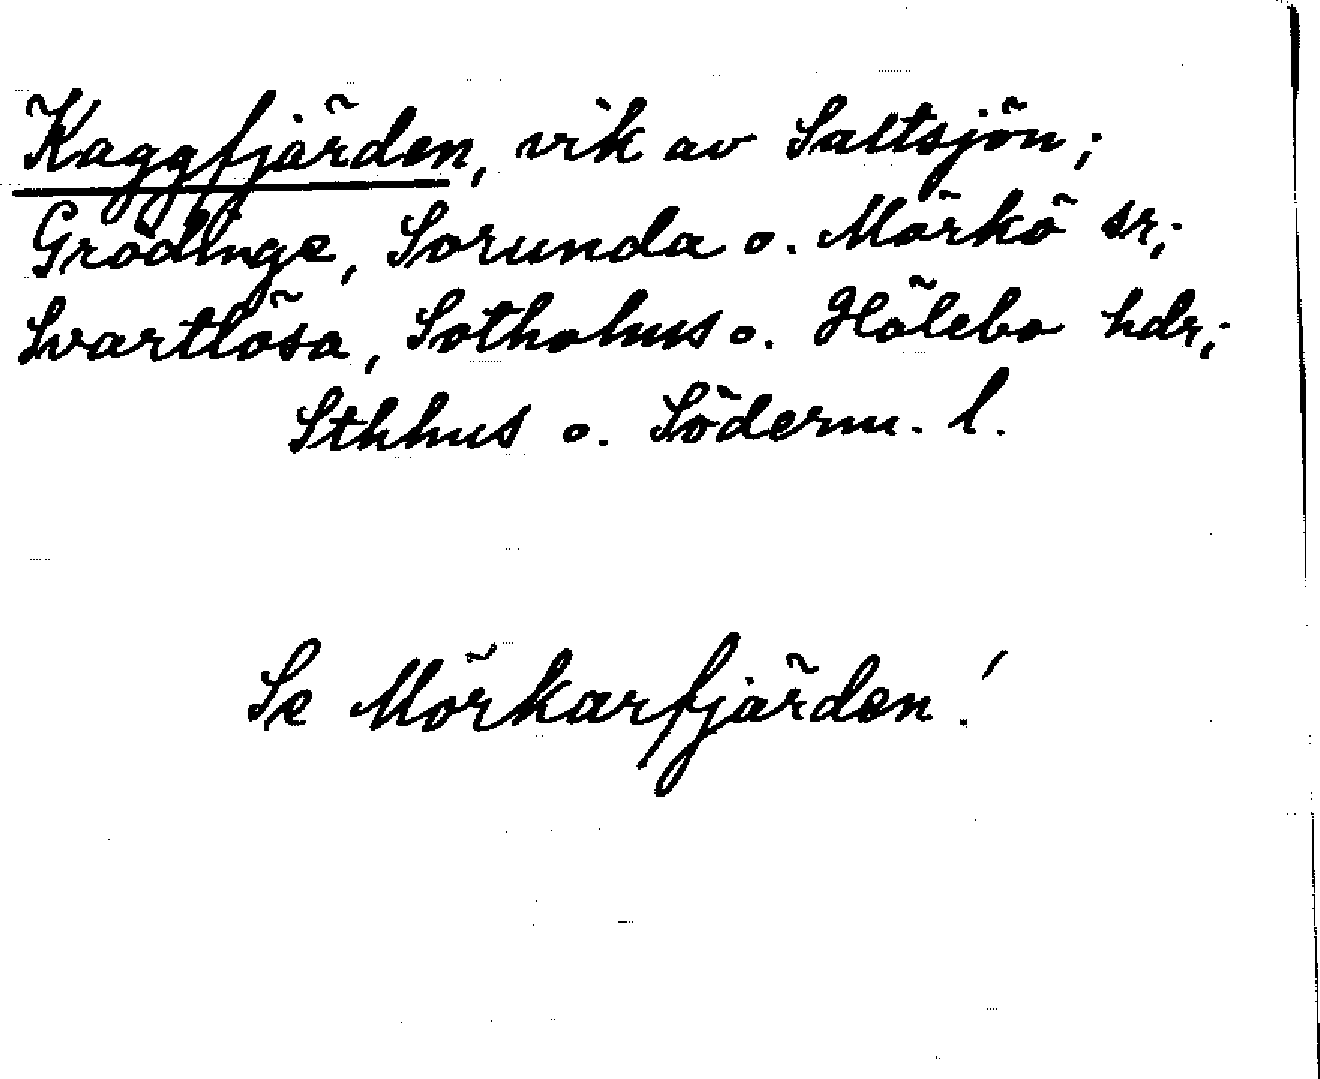 Kaggfjärden, vik av Saltsjön;
Grödinge, Sorunda o. Mörkö sr;
Svartlösa, Sotholms o. Hölebo hdr;
Sthlms o. Söderm. l.
Se Mörkarfjärden!